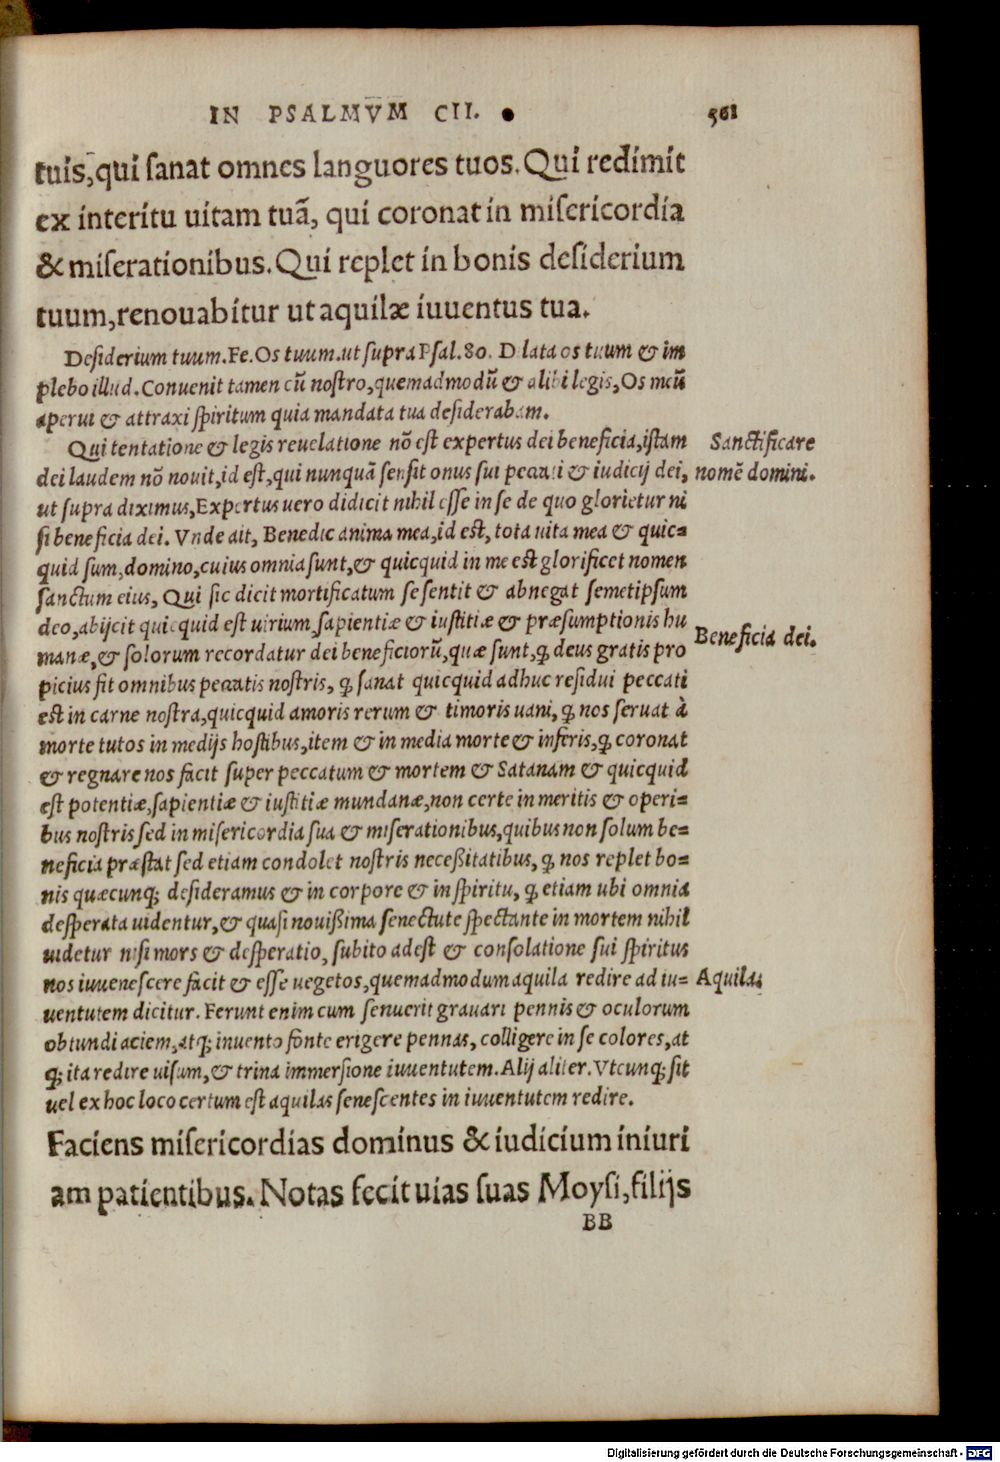 IN PSALMVM CII. 561
tuis, qui ſanat omnes languores tuos. Qui redimit
ex interitu uitam tuã, qui coronat in miſericordia
& miſerationibus. Qui replet in bonis deſiderium
tuum, renouabitur ut aquilæ iuuentus tua.
Deſiderium tuum. Fe. Os tuum. ut ſupra Pſal. 80. Dilata os tuum & im
plebo illud. Conuenit tamen cũ noſtro, quemadmodũ & alibi legis, Os meũ
aperui & attraxi ſpiritum quia mandata tua deſiderabam.
Qui tentatione & legis reuelatione nõ eſt expertus dei beneficia, iſtam
Sanctificare
dei laudem nõ nouit, id eſt, qui nunquã ſenſit onus ſui peccati & iudicij dei,
nomẽ domini.
ut ſupra diximus, Expertus uero didicit nihil eſſe in ſe de quo glorietur ni
ſi beneficia dei. Vnde ait, Benedic anima mea, id eſt, tota uita mea & quic=
quid ſum, domino, cuius omnia ſunt, & quicquid in me eſt glorificet nomen
ſanctum eius, Qui ſic dicit mortificatum ſe ſentit & abnegat ſemetipſum
deo, abijcit quicquid eſt uirium, ſapientiæ & iuſtitiæ & præſumptionis hu
Beneficia dei.
manæ, & ſolorum recordatur dei beneficiorũ, quæ ſunt, ꝙ deus gratis pro
picius fit omnibus peccatis noſtris, ꝙ ſanat quicquid adhuc reſidui peccati
eſt in carne noſtra, quicquid amoris rerum & timoris uani, ꝙ nos ſeruat à
morte tutos in medijs hoſtibus, item & in media morte & inferis, ꝙ coronat
& regnare nos facit ſuper peccatum & mortem & Satanam & quicquid
eſt potentiæ, ſapientiæ & iuſtitiæ mundanæ, non certe in meritis & operi=
bus noſtris ſed in miſericordia ſua & miſerationibus, quibus non ſolum be=
neficia præſtat ſed etiam condolet noſtris neceßitatibus, ꝙ nos replet bo=
nis quæcunq; deſideramus & in corpore & in ſpiritu, ꝙ etiam ubi omnia
deſperata uidentur, & quaſi nouißima ſenectute ſpectante in mortem nihil
uidetur niſi mors & deſperatio, ſubito adeſt & conſolatione ſui ſpiritus
nos iuueneſcere facit & eſſe uegetos, quemadmodum aquila redire ad iu=
Aquila.
uentutem dicitur. Ferunt enim cum ſenuerit grauari pennis & oculorum
obtundi aciem, atq; inuento fonte erigere pennas, colligere in ſe colores, at
q; ita redire uiſum, & trina immerſione iuuentutem. Alij aliter. Vtcunq; ſit
uel ex hoc loco certum eſt aquilas ſeneſcentes in iuuentutem redire.
Faciens miſericordias dominus & iudicium iniuri
am patientibus. Notas fecit uias ſuas Moyſi, filijs
BB
Digitalisierung gefördert durch die Deutsche Forschungsgemeinschaft - DFG